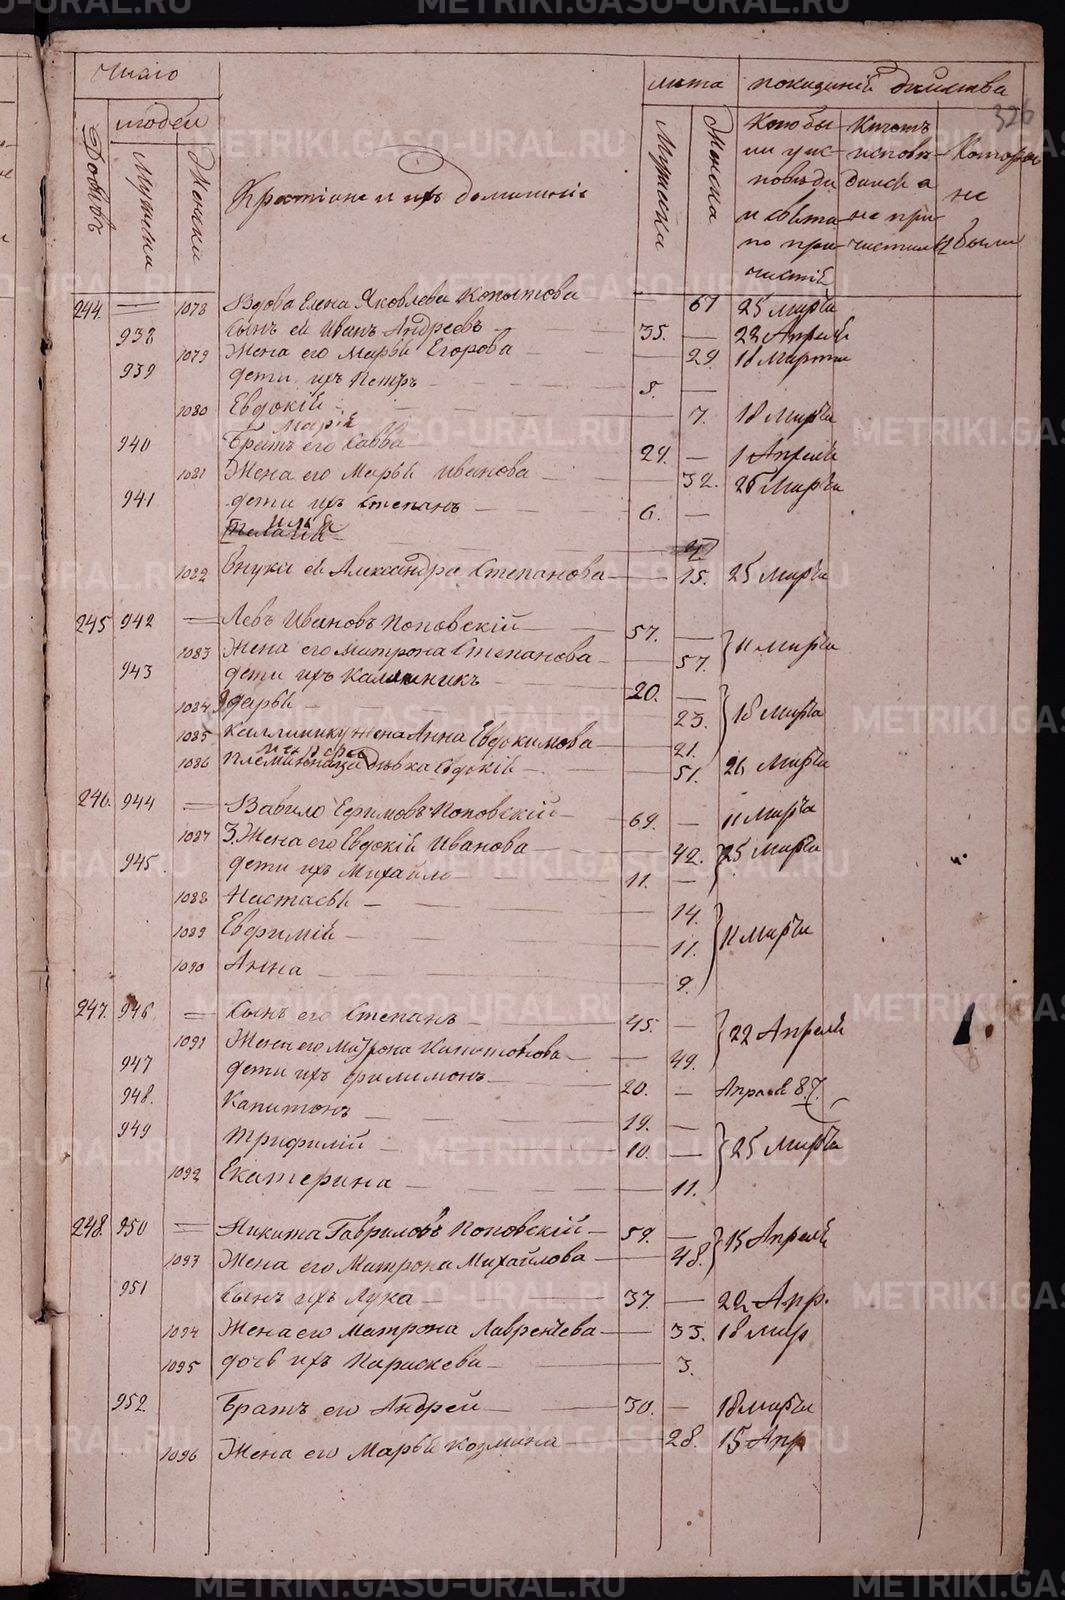 Число
лѣта покаянія дѣйства
326
людей
Домовъ
Мужска
Женска
Крестіане и ихъ домашніе
Мужска
Женска
Кто бы
ли у ис
повѣди
и свята
го при
частія
Кто
исповѣ
дался а
не при
частился
Которые
не
были
244. 1078 Вдова Елена Яковлева Копытова — 67 25 марта
938 Сынъ ея Иванъ Андреевъ 35. — 22 Апреля
1079 Жена его Марья Егорова — 29. 18 Марта
939 дети ихъ Петръ 5. —
1080 Евдокія — 7. 18 Марта
Марія
940 Братъ его Савва 24. — 1 Апреля
1081 Жена его Марья Иванова — 32. 26 Марта
941 дети ихъ Степанъ 6. —
Пелагія
1082 Внука ея Александра Степанова — 15. 25 Марта
245 942 Левъ Ивановъ Поповскій 57. —
1083 Жена его Матрона Степанова — 57. 11 марта
943 дети ихъ Калинникъ 20. —
1084 Дарья — 23. 18 Марта
1085 Каллинику жена Анна Евдокимова — 21.
1086 племянница девка Евдокія — 51. 26 Марта
246. 944 Вавило Ефимовъ Поповскій 69. — 11 Марта
1087 3. Жена его Евдокія Иванова — 42. 25 Марта
945. дети ихъ Михайло 11. —
1088 Настасья — 14.
1089 Евфимія — 11. 11 Марта
1090 Анна — 9.
247. 946 Сынъ его Степанъ 45. —
1091 Жена его Матрона Капитонова — 49. 22 Апреля
947 дети ихъ Филимонъ 20. — Апреля 8.7.
948. Капитонъ 19. —
949 Трифилій 10. — 25 Марта
1092 Екатерина — 11.
248. 950 Никита Гавриловъ Поповскій 59. —
1093 Жена его Матрона Михайлова — 48. 15 Апреля
951 Сынъ ихъ Лука 37. — 20 Апр.
1094 Жена его Матрона Лаврентева — 33. 18 мар
1095 дочь ихъ Параскева — 3.
952 Братъ его Андрей 30. — 18 марта
1096 Жена его Марья Козмина — 28. 15 Апр
METRIKI.GASO-URAL.RU